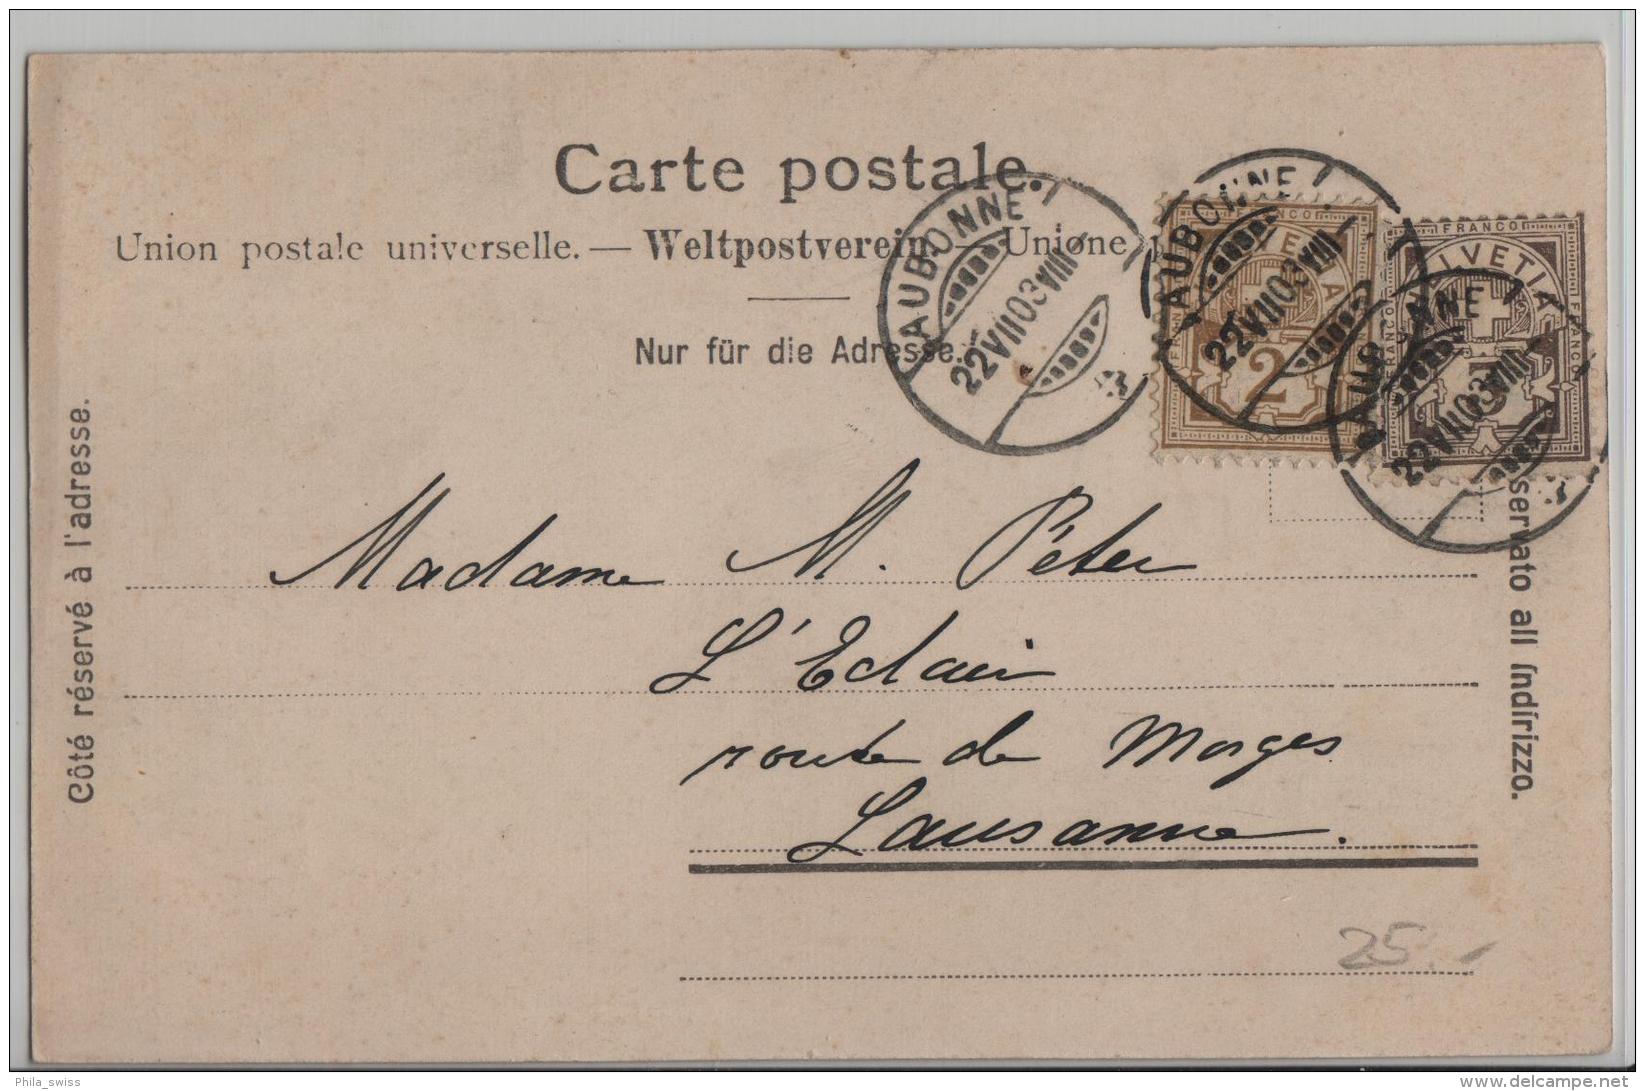 Carte postale.
Union postale universelle. — Weltpostverein — Unione
Nur für die Adresse.
Côté réservé à l'adresse.
servato all Indirizzo.
AUBONNE
22 VII 03 VIII
AUBONNE
22 VII 03 VIII
AUBONNE
22 VII 03 VIII
FRANCO
HELVETIA
2
FRANCO
HELVETIA
FRANCO
Madame M. Péter
L'Eclair
route de Morges
Lausanne.
25.-
Phila_swiss
delcampe.net